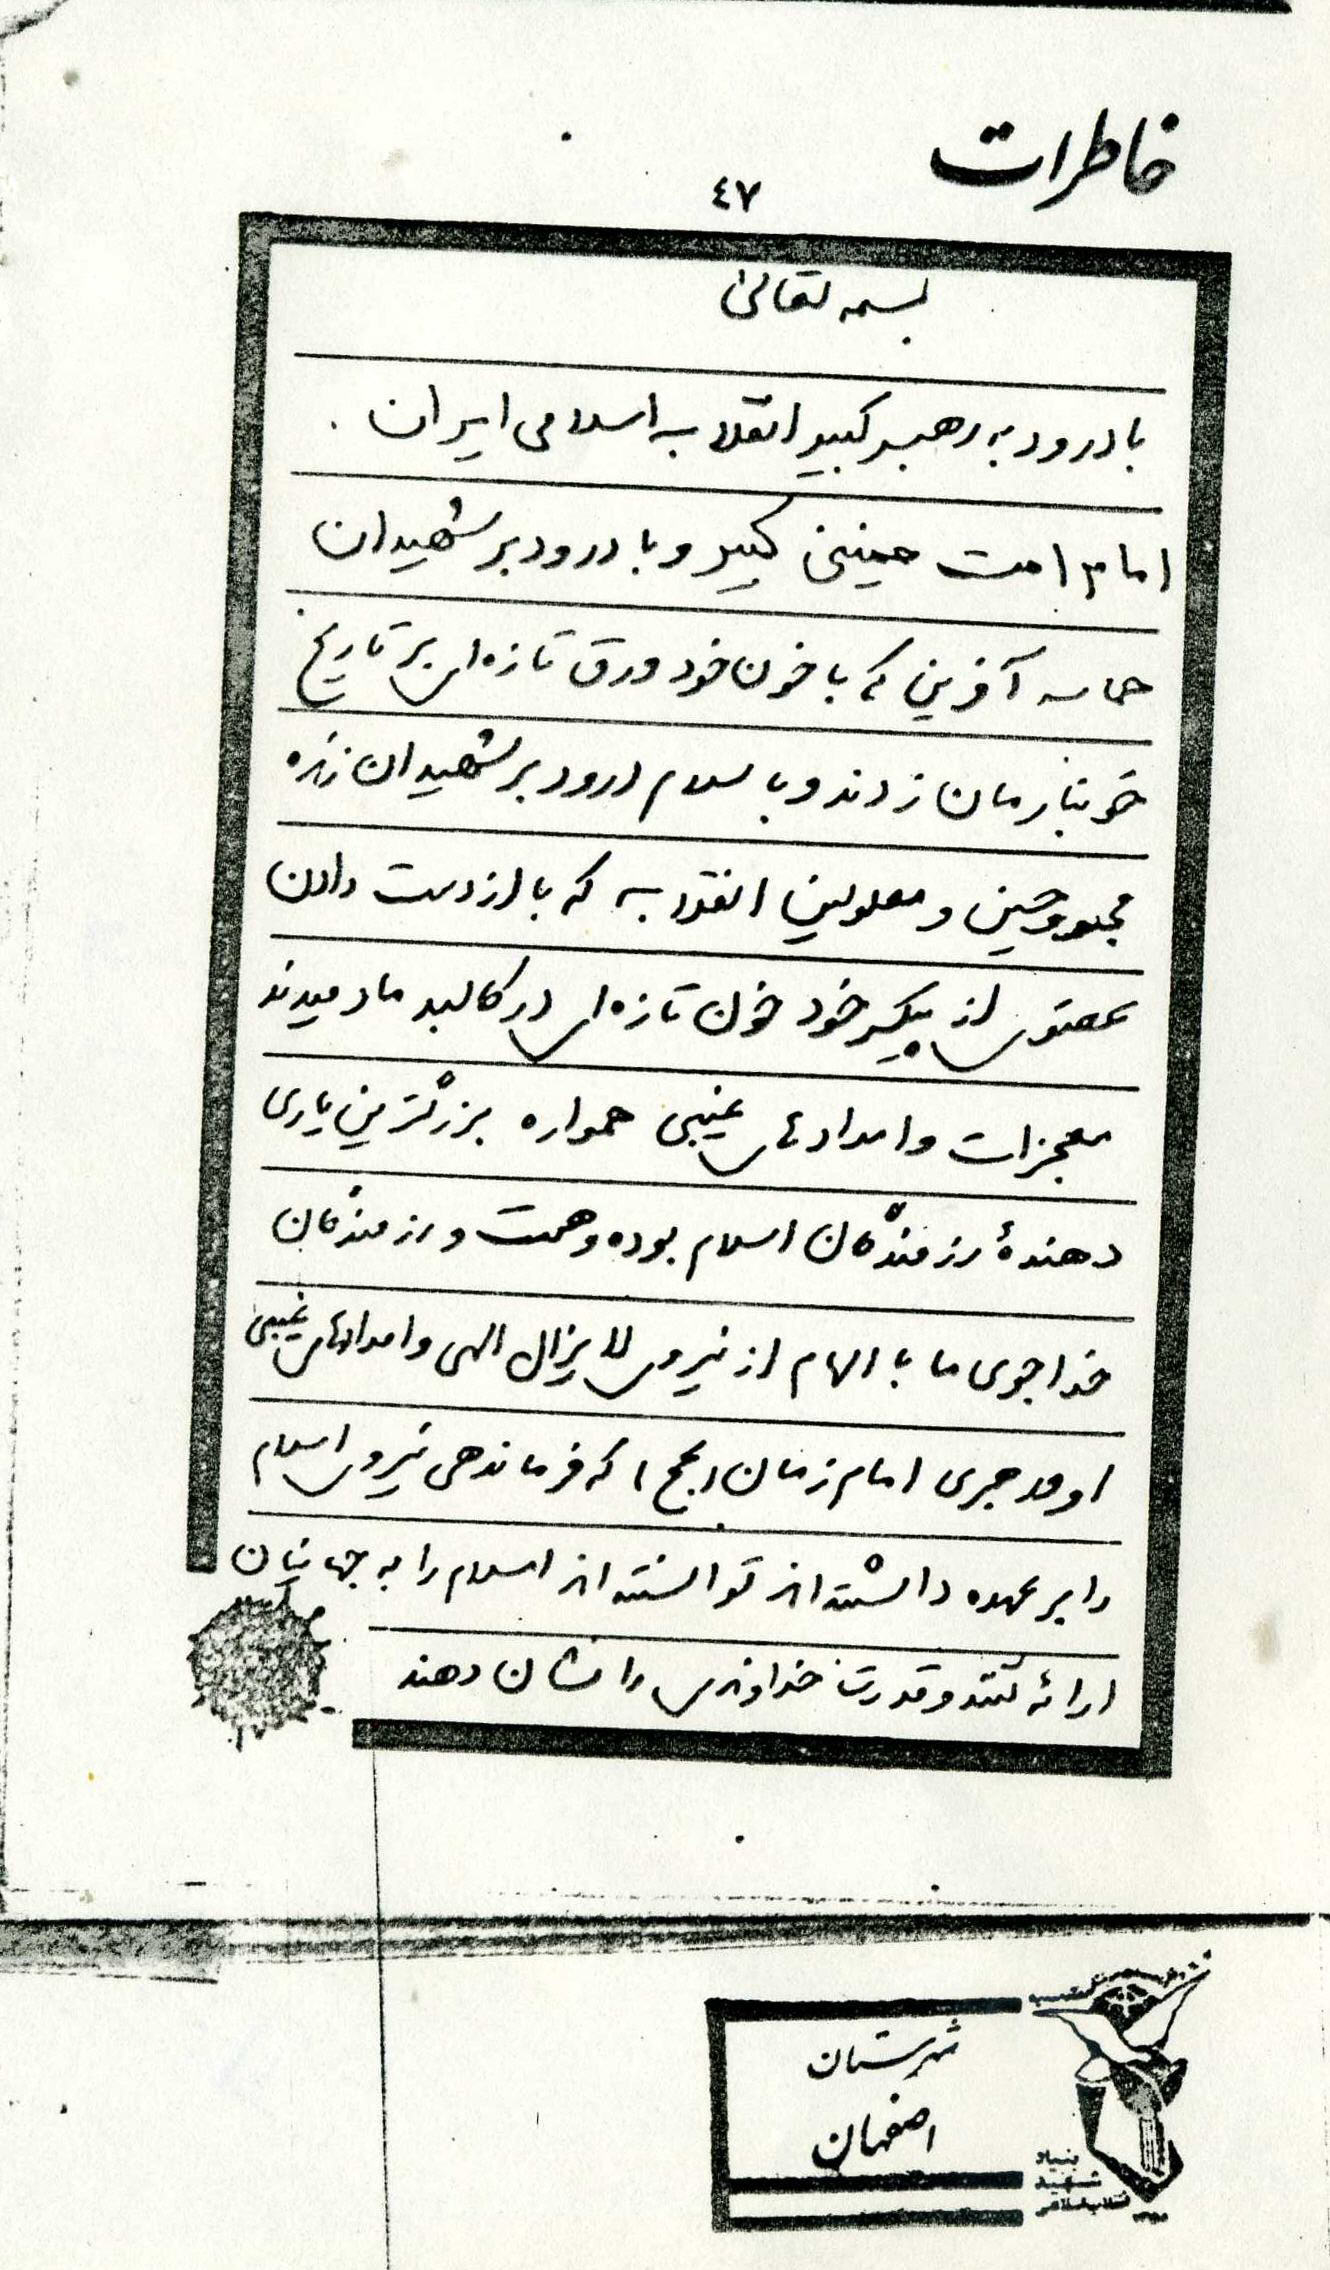 خاطرات
٤٧
بسمه تعالی
با درود به رهبر کبیر انقلاب اسلامی ایران .
امام امت خمینی کبیر و با درود بر شهیدان
حماسه آفرین که با خون خود ورق تازه‌ای بر تاریخ
خونبارمان زدند و با سلام درود بر شهیدان زنده
مجروحین و معلولین انقلاب که با از دست دادن
عضوی از پیکر خود خون تازه‌ای در کالبد ما دمیدند
معجزات و امدادهای غیبی همواره بزرگترین یاری
دهندهٔ رزمندگان اسلام بوده و همت و رزمندگان
خداجوی ما با الهام از نیروی لایزال الهی و امدادهای غیبی
او مدجری امام زمان (عج) که فرماندهی نیروی اسلام
را بر عهده داشته‌اند توانسته‌اند اسلام را به جهانیان
ارائه کنند و قدرت خداوندی را نشان دهند
شهرستان
اصفهان
بنیاد
شهید
انقلاب اسلامی